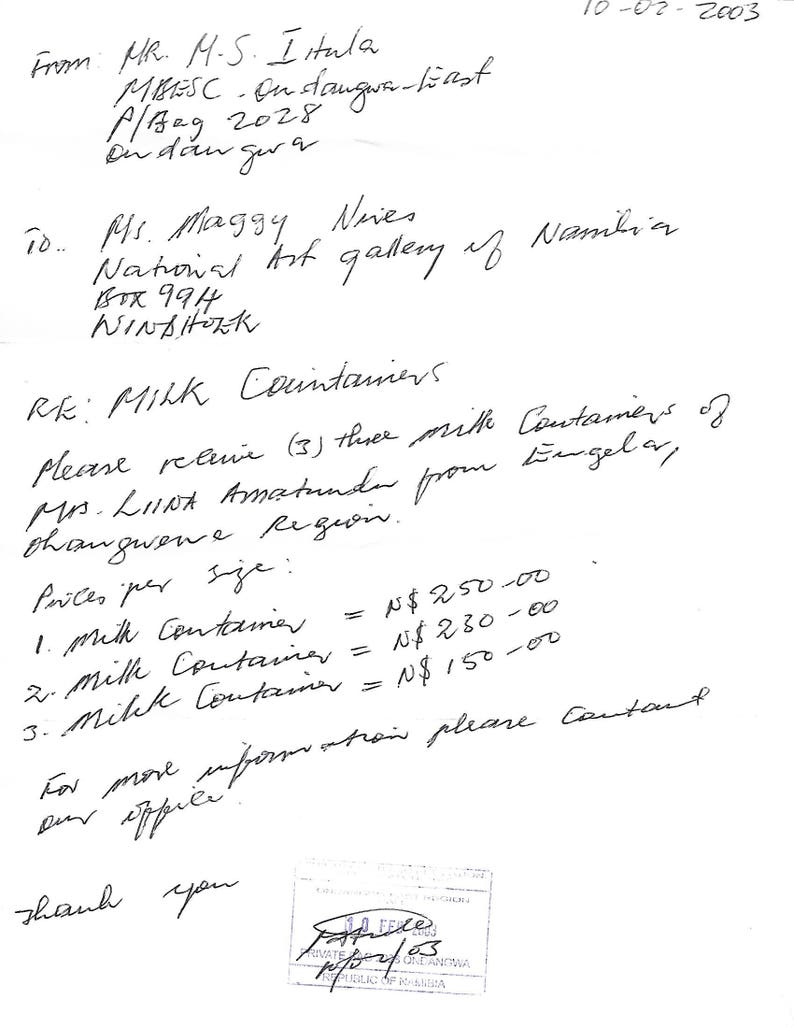 10-02-2003
From: MR. M.S. Itula
MBESC - Ondangwa-East
P/Bag 2028
Ondangwa
To.. Ms. Maggy Nives
National Art gallery of Namibia
Box 994
WINDHOEK
RE: MILK Countainers
Please receive (3) three Milk Containers of
MRS. LIINA Amatundu from Engela,
Ohangwena Region.
Prices per size:
1. Milk Container = N$ 250-00
2. Milk Container = N$ 230-00
3. Milk Container = N$ 150-00
For more information please contact
our office.
Thank you
REGION
10 FEB 2003
10/02/03
PRIVATE BAG 2028 ONDANGWA
REPUBLIC OF NAMIBIA